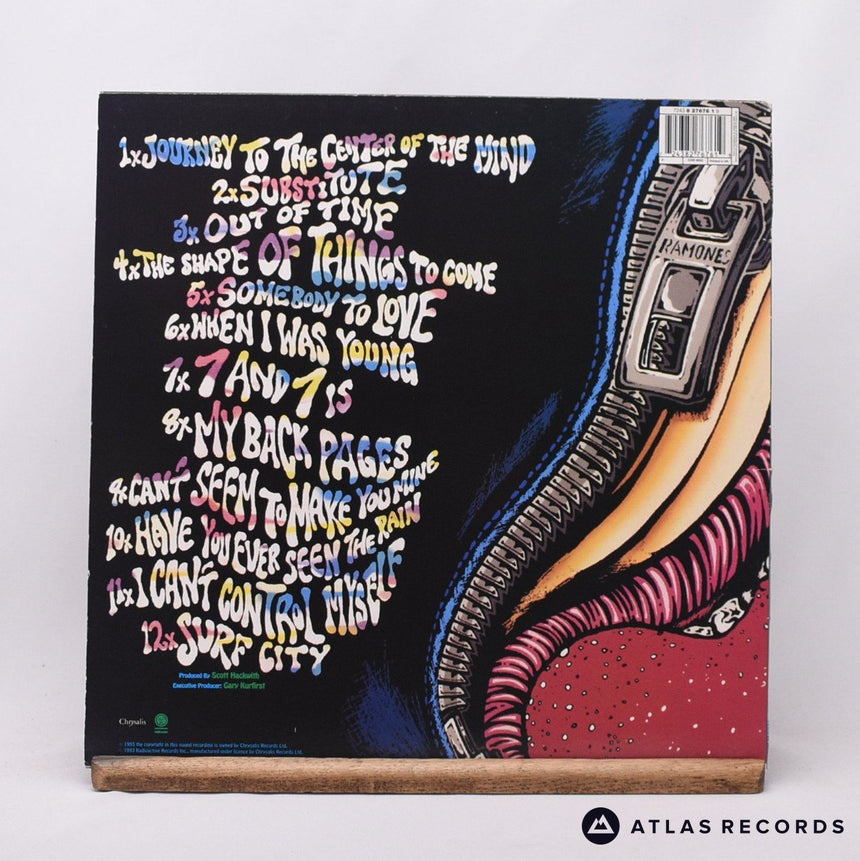 7243 8 27676 1 9
1x JOURNEY TO THE CENTER OF THE MIND
2x SUBSTITUTE
3x OUT OF TIME
4x THE SHAPE OF THINGS TO COME
5x SOMEBODY TO LOVE
6x WHEN I WAS YOUNG
7x 7 AND 7 IS
8x MY BACK PAGES
9x CAN'T SEEM TO MAKE YOU MINE
10x HAVE YOU EVER SEEN THE RAIN
11x I CAN'T CONTROL MYSELF
12x SURF CITY
RAMONES
Produced By Scott Hackwith
Executive Producer: Gary Kurfirst
Chrysalis
1993 the copyright in this sound recording is owned by Chrysalis Records Ltd.
1993 Radioactive Records Inc., manufactured under licence by Chrysalis Records Ltd.
ATLAS RECORDS